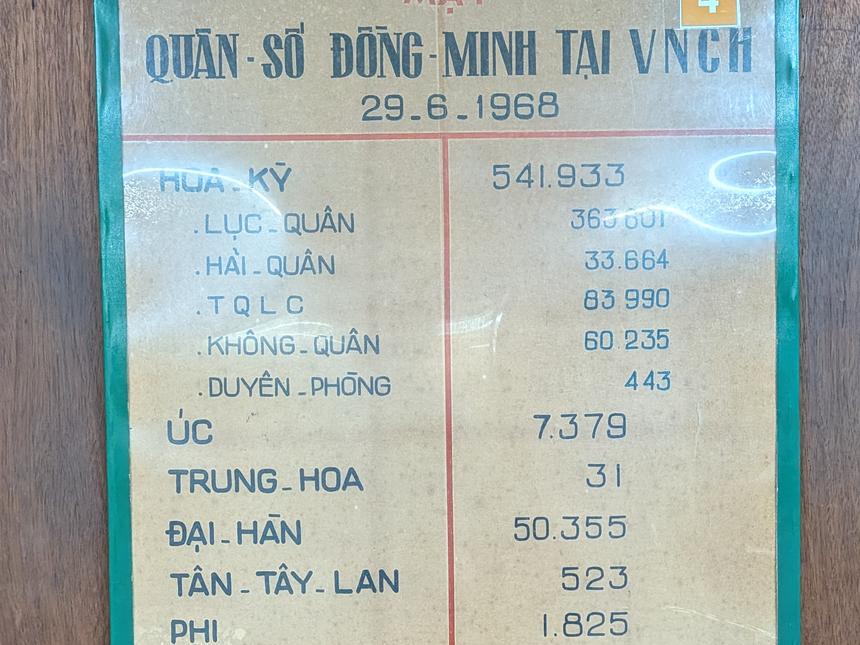 MẬT
4
QUÂN-SỐ ĐỒNG-MINH TẠI VNCH
29_6_1968
HOA_KỲ 541.933
.LỤC_QUÂN 363 601
.HẢI_QUÂN 33.664
.TQLC 83 990
.KHÔNG_QUÂN 60.235
.DUYÊN_PHÒNG 443
ÚC 7.379
TRUNG_HOA 31
ĐẠI_HÀN 50.355
TÂN_TÂY_LAN 523
PHI 1.825